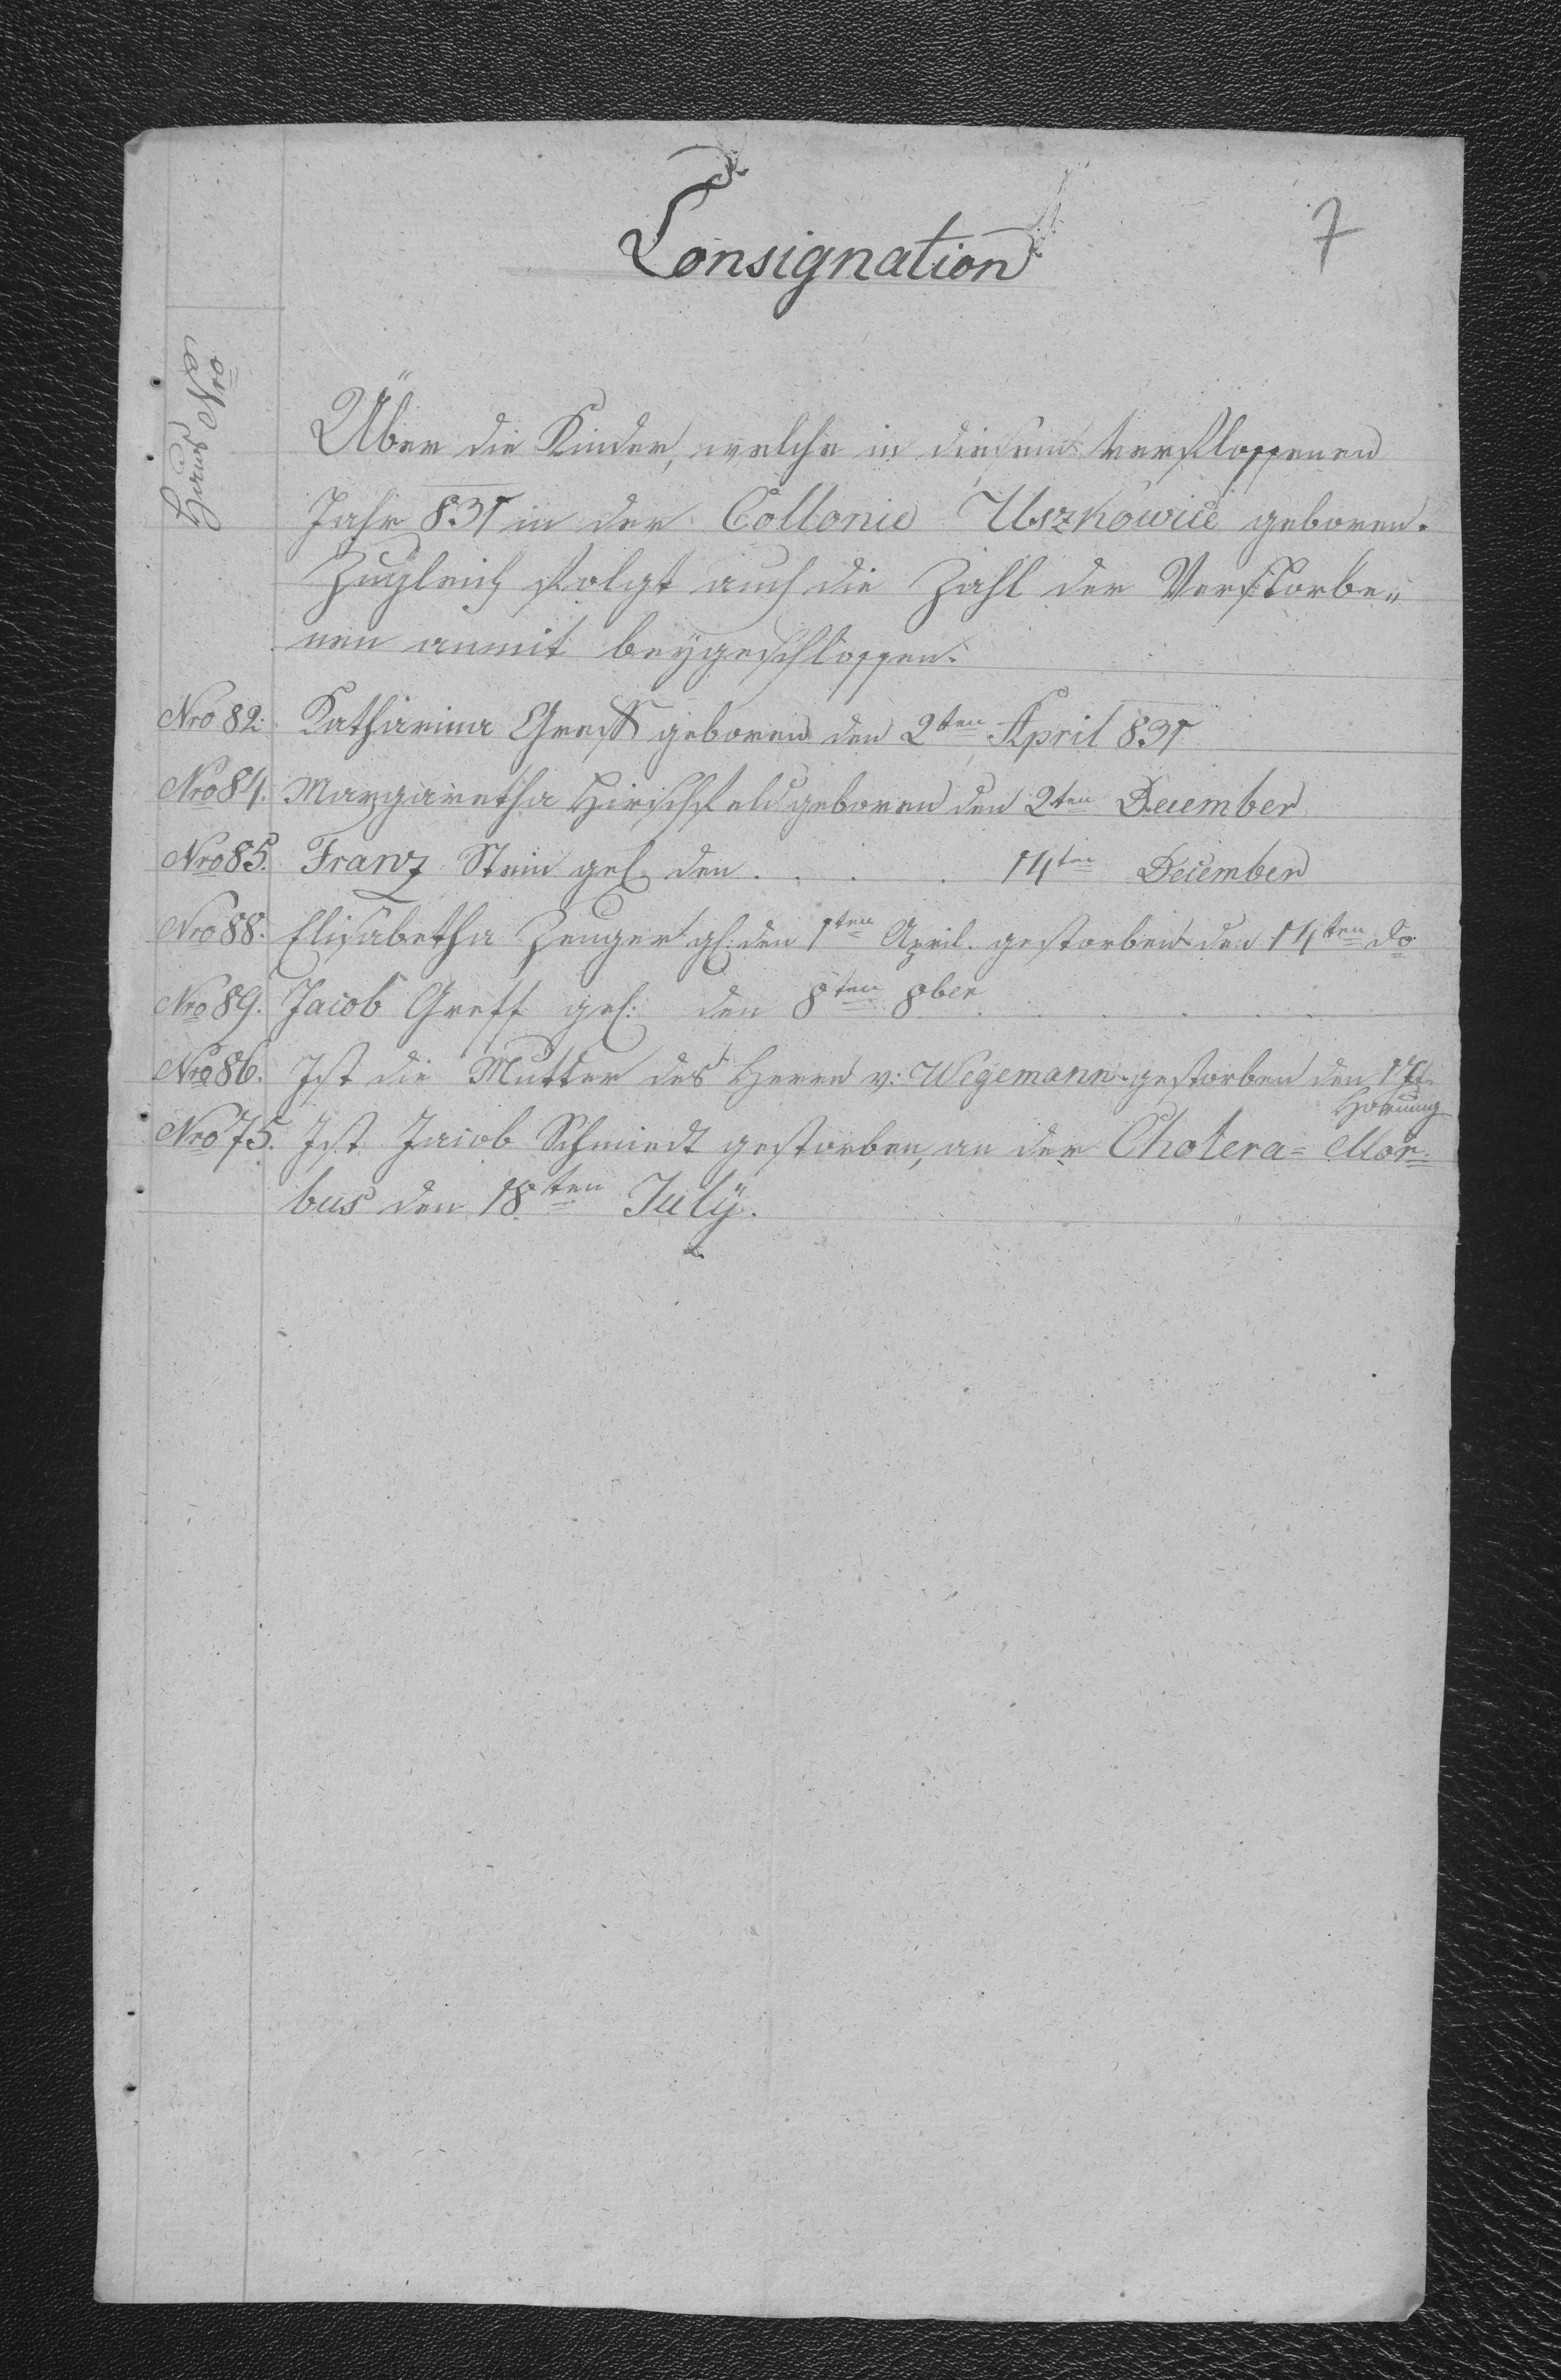 7
Consignation
Haus Nro
Über die Kinder, welche in diesem verflossenen
Jahr 831 in der Collonie Uszkowice geboren.
Zugleich folgt auch die Zahl der Verstorbe„
nen anmit beygeschlossen.
Nro 82. Katharina Greff geboren den 2ten April 831
Nro 84. Margaretha Hirschfeld geboren den 2ten December
Nro 85. Franz Stein geb. den . . . . 14ten December
Nro 88. Elisabetha Zenger gb: den 1ten April. gestorben den 14ten do
Nro 89. Jacob Greff geb: den 8ten 8ber
Nro 86. Ist die Mutter des Herrn v: Wegemann gestorben den
Hornung
Nro 75. Ist Jacob Schmiedt gestorben, an der Cholera= Mor=
bus den 18ten July.